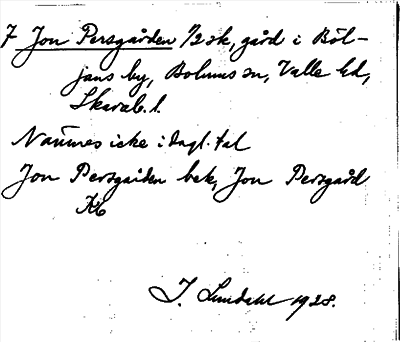 7 Jon Persgården 1/2 sk, gård i Böl-
jans by, Bolums sn, Valle hd,
Skarab. l.
Nämnes icke i dagl. tal
Jon Persgården bek, Jon Persgård
JK
I. Lundahl 1928.